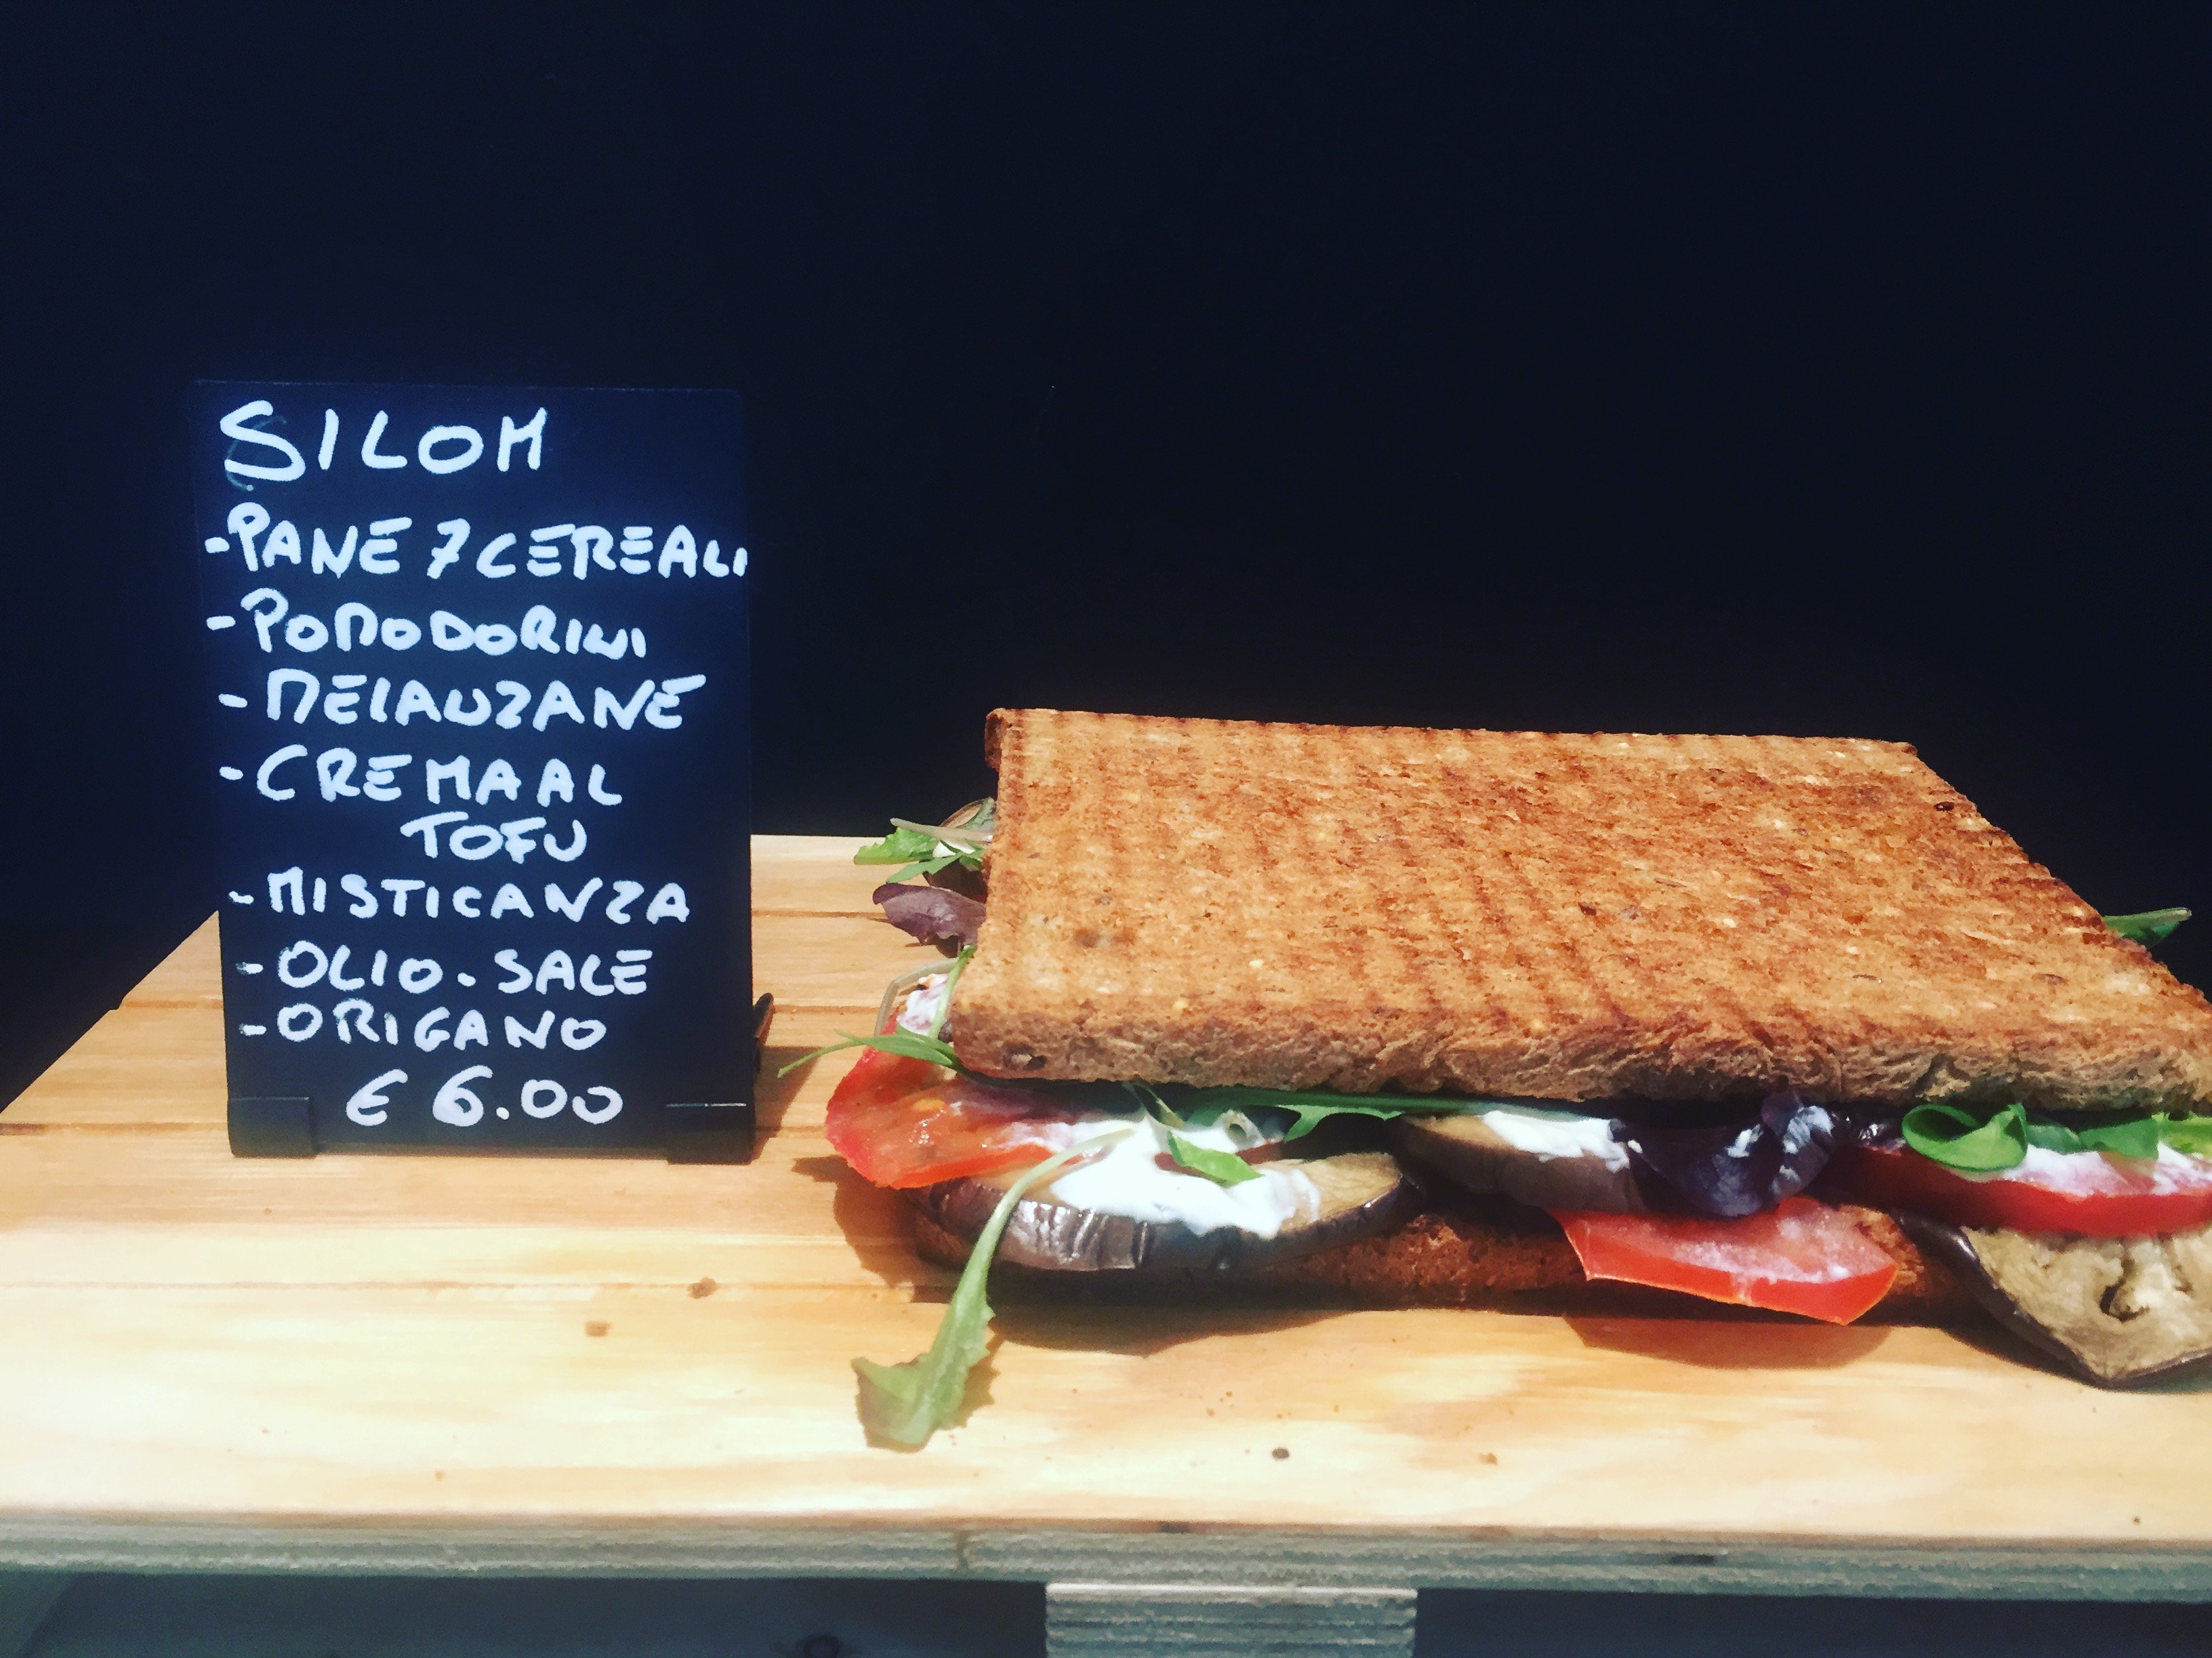 SILOM
-PANE 7 CEREALI
-POMODORINI
-MELANZANE
-CREMA AL
TOFU
-MISTICANZA
-OLIO. SALE
-ORIGANO
€ 6.00